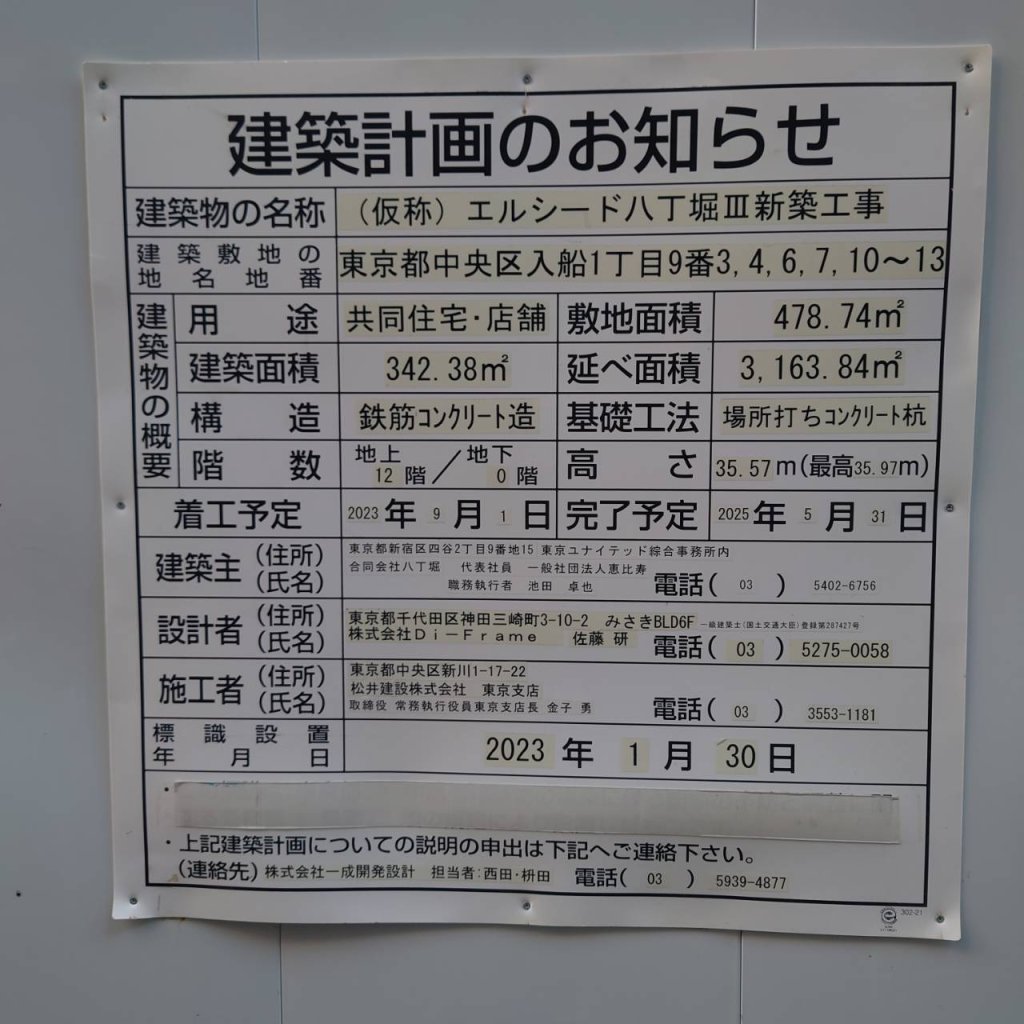 建築計画のお知らせ
建築物の名称 （仮称）エルシード八丁堀Ⅲ新築工事
建築敷地の地名地番 東京都中央区入船1丁目9番3,4,6,7,10～13
建築物の概要
用途 共同住宅・店舗 敷地面積 478.74㎡
建築面積 342.38㎡ 延べ面積 3,163.84㎡
構造 鉄筋ｺﾝｸﾘｰﾄ造 基礎工法 場所打ちｺﾝｸﾘｰﾄ杭
階数 地上12階／地下0階 高さ 35.57m(最高35.97m)
着工予定 2023年9月1日 完了予定 2025年5月31日
建築主 （住所）（氏名） 東京都新宿区四谷2丁目9番地15 東京ユナイテッド綜合事務所内
合同会社八丁堀 代表社員 一般社団法人恵比寿
職務執行者 池田 卓也 電話( 03 ) 5402-6756
設計者 （住所）（氏名） 東京都千代田区神田三崎町3-10-2 みさきBLD6F 一級建築士(国土交通大臣)登録第287427号
株式会社Di-Frame 佐藤 研 電話( 03 ) 5275-0058
施工者 （住所）（氏名） 東京都中央区新川1-17-22
松井建設株式会社 東京支店
取締役 常務執行役員東京支店長 金子 勇 電話( 03 ) 3553-1181
標識設置年月日 2023年1月30日
・上記建築計画についての説明の申出は下記へご連絡下さい。
(連絡先) 株式会社一成開発設計 担当者:西田・枡田 電話( 03 ) 5939-4877
302-21